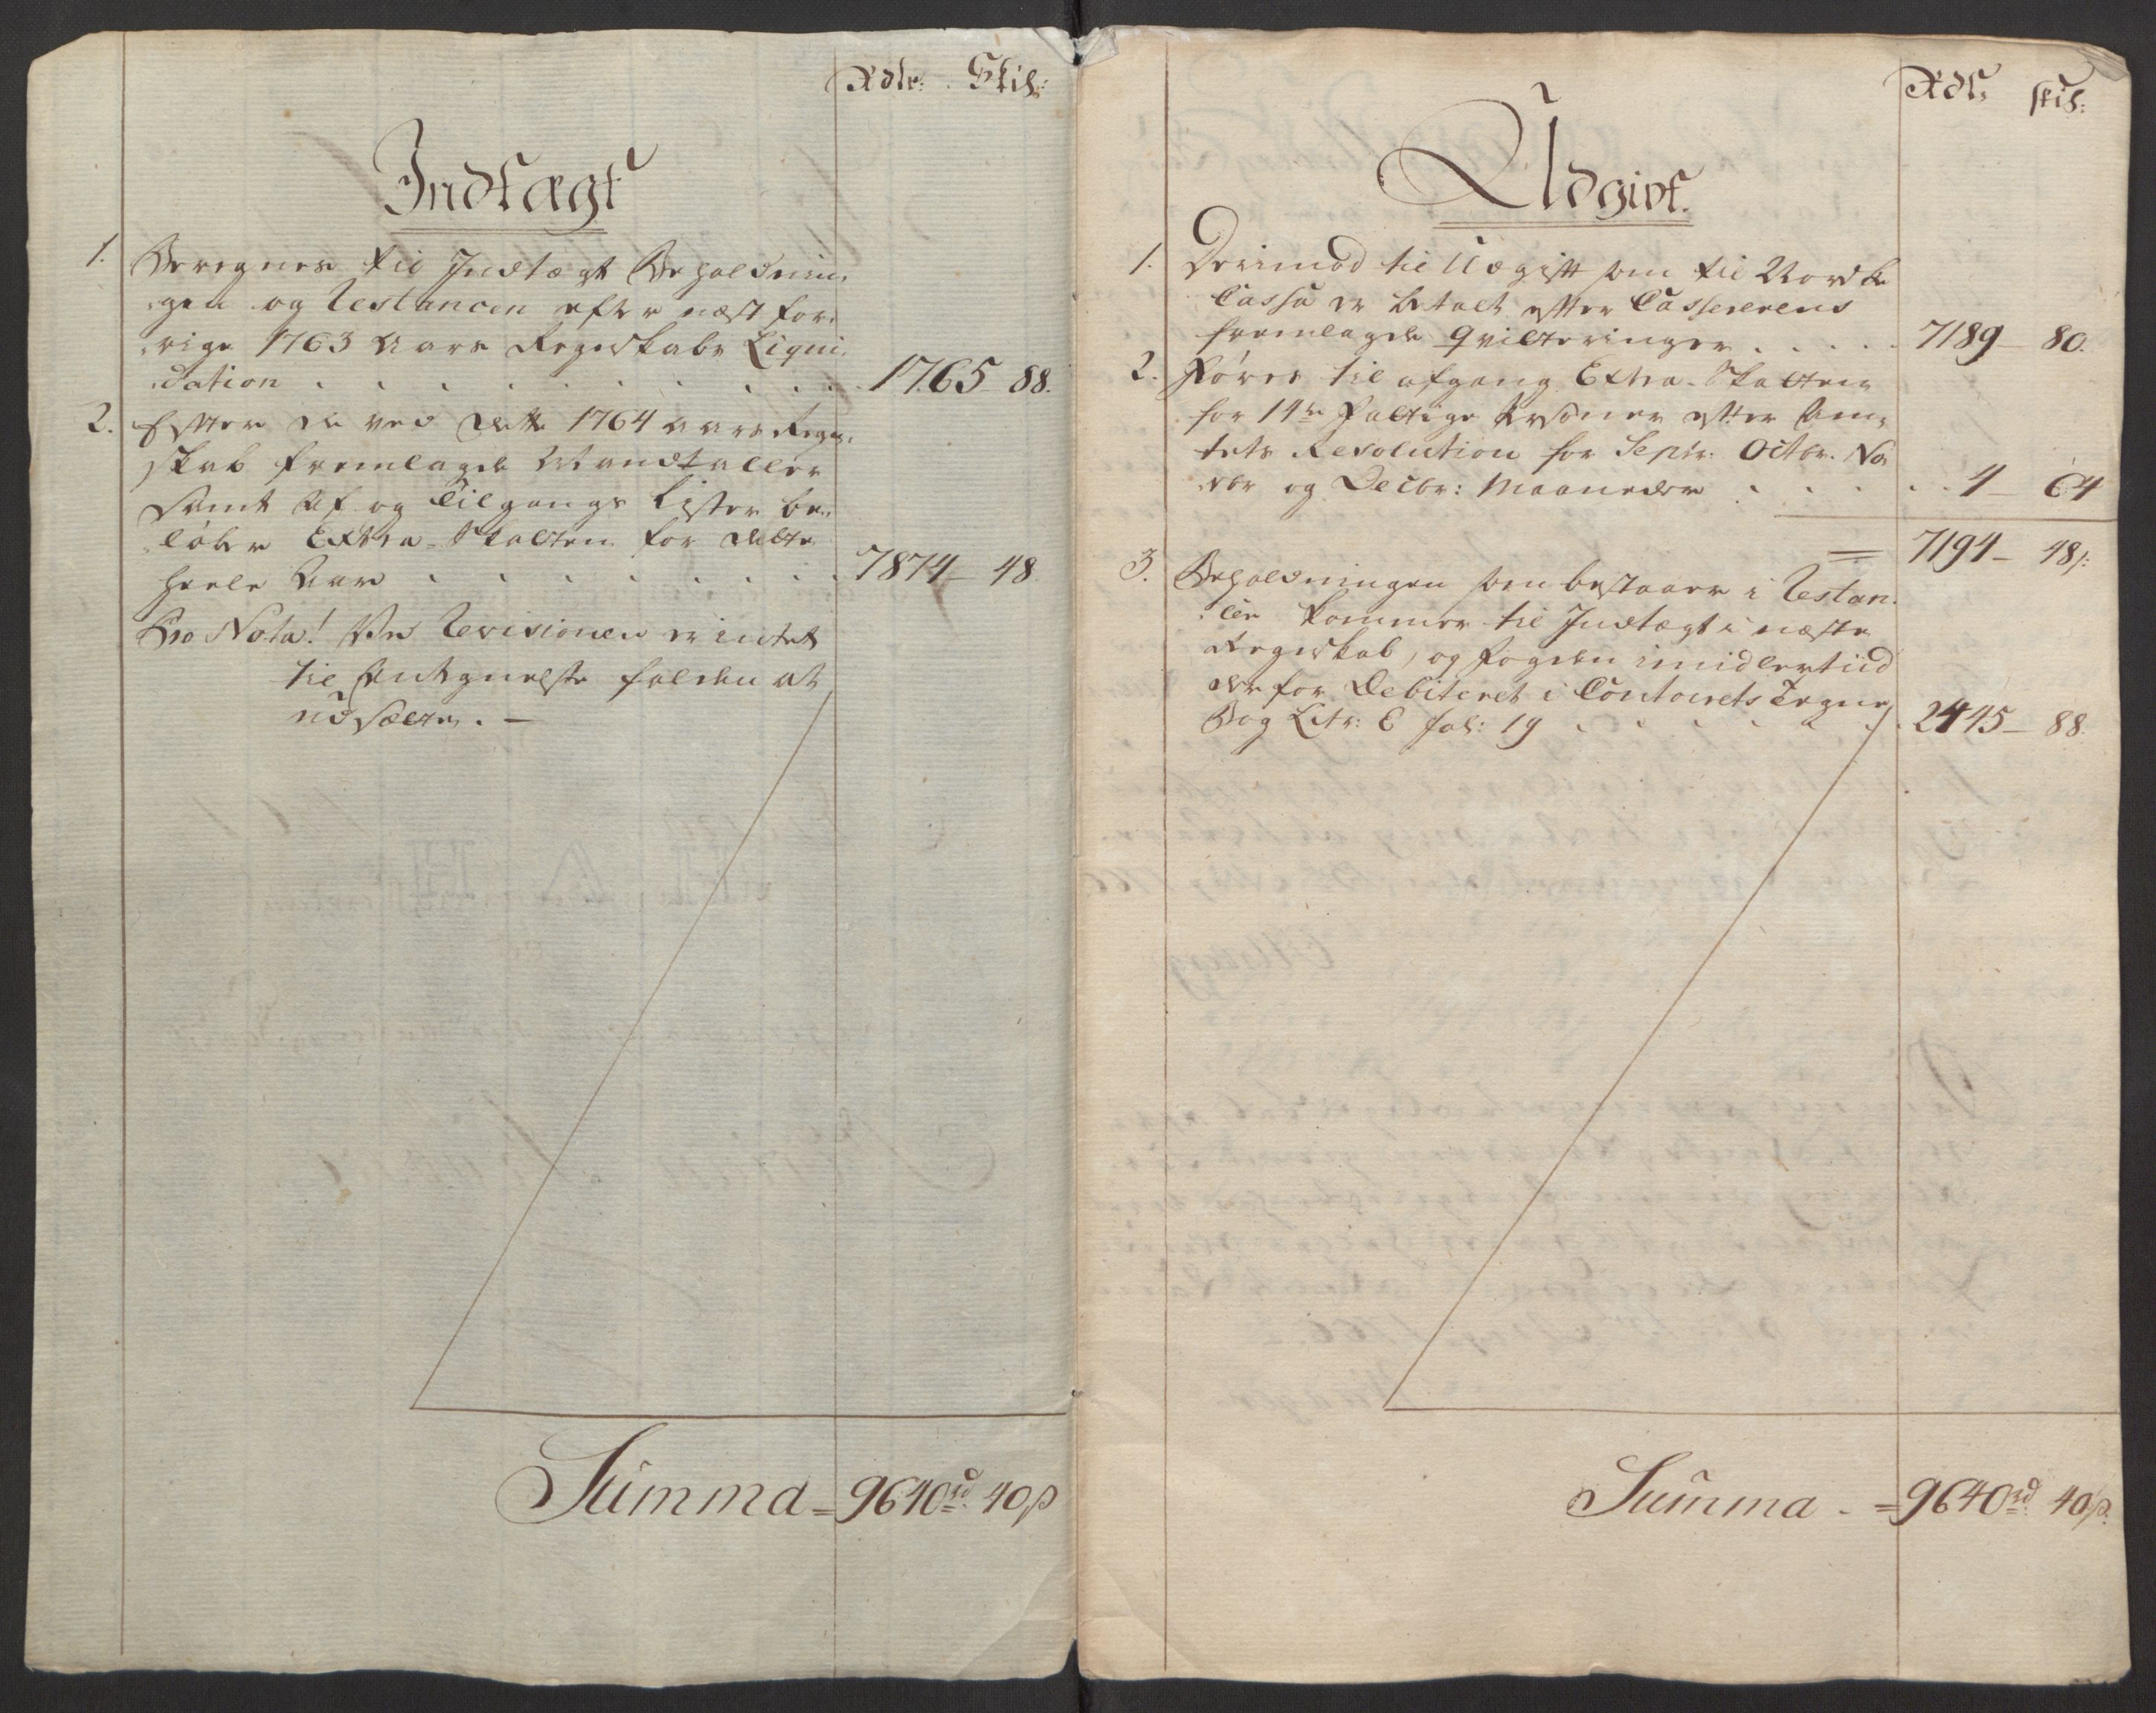 Rdlr: Skil:
Indtægt
1. Beregnes til Indtægt Beholdnin-
gen og Restancen efter næst for-
rige 1763 Aars Regnskabs Liqui-
dation . . . . . . . . . 1765 88.
2. Efter de ved dette 1764 Aars Regn-
skab fremlagde Mandtaller
samt Af og Tilgangs Lister be-
løber Extra-Skatten for dette
heele Aar . . . . . . . . 7874 - 48.
Pro Nota! Ved Revisionen er intet
til Antegnelse falden at
udsætte. -
Summa = 9640rd 40ß
Rdl: skil:
Udgivt.
1. Derimod til Udgift som til Nordske
Cassa er betalt efter Cassererens
fremlagde Qvitteringer . . . . . 7189 - 80.
2. Føres til afgang Extra-Skatten
for 14de fattige Persöner efter Am-
tets Resolution for Septr. Octbr. No-
vbr og Decbr: Maaneder . . . . . 4 - 64
= 7194 - 48ß.
3. Beholdningen som bestaaer i Restan-
ce kommer til Indtægt i næste
Regnskab, og fogden imidlertiid
der for Debiteret i Contoirets Regne
Bog Litr: E fol: 19 . . . . . . 2445 - 88.
Summa - = 9640rd 40ß.